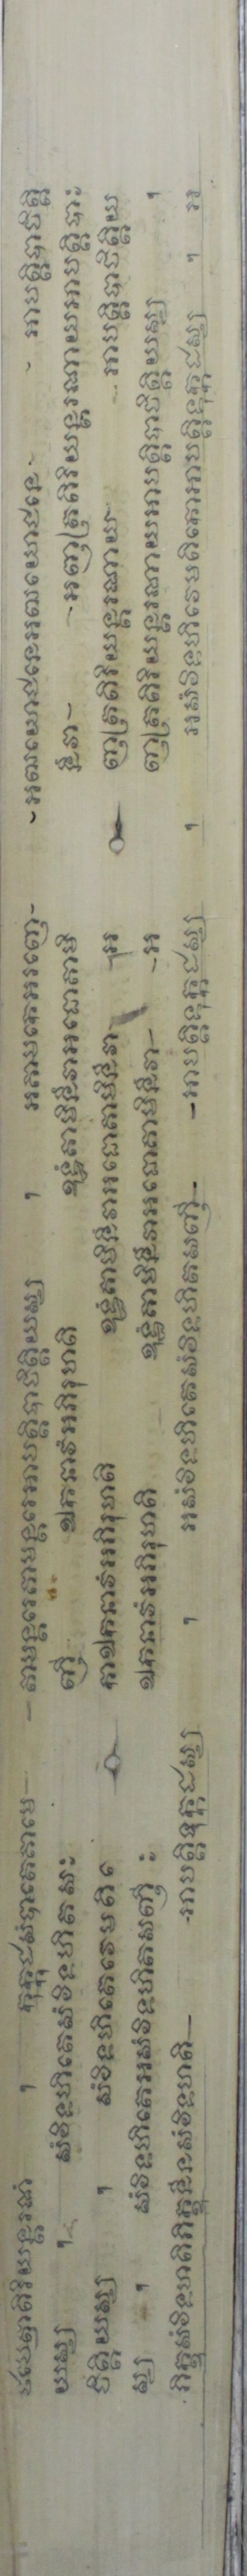 ឋបេត្វាតិរិយន្តរណំ ។ កុក្កុដសំបាតេគាមេ - - គាមន្តរេគាមន្តរេអាបត្តិបាចិត្តិយស្ស ។ អគាមកេអរញ្ញេ - - អឍយោជនេអឍយោជនេ - - អាបត្តិបាចិត្តិ
យស្ស ។ សំវិទហិតេសំវិទហិតសះ ញ្ញី ឯកនាវំអភិរុហតិ ឧទ្ធំគាមិនឹវាអធោគាមិ នឹវា - - អញ្ញត្រតិរិយន្តរណាយអាបត្តិបាះ
ចិត្តិយស្ស ។ សំវិទហិតេវេមតិ កោឯកនាវំអភិរុហតិ ឧទ្ធំគាមិនឹវាអធោគាមិនឹវា - - អ ញ្ញត្រតិរិយន្តរណាយ - - អាបត្តិបាចិត្តិយ
ស្ស ។ សំវិទហិតេអសំវិទហិតសញ្ញី ះ ឯកនាវំអភិរុហតិ ឧទ្ធំគាមិនឹវាអធោគាមិនឹវា - - អ ញ្ញត្រតិរិយន្តរណាយអាបត្តិបាចិត្តិយស្ស ។
ភិក្ខុសំវិទហតិភិក្ខុនឹនសំវិទហតិ - - អាបត្តិទុក្កដស្ស ។ អសំវិទហិតេសំវិទហិតសញ្ញី - - អាបត្តិទុក្កដស្ស ។ អសំវិទហិតេវេមតិកោអាបត្តិទុក្កដស្ស ។ អ